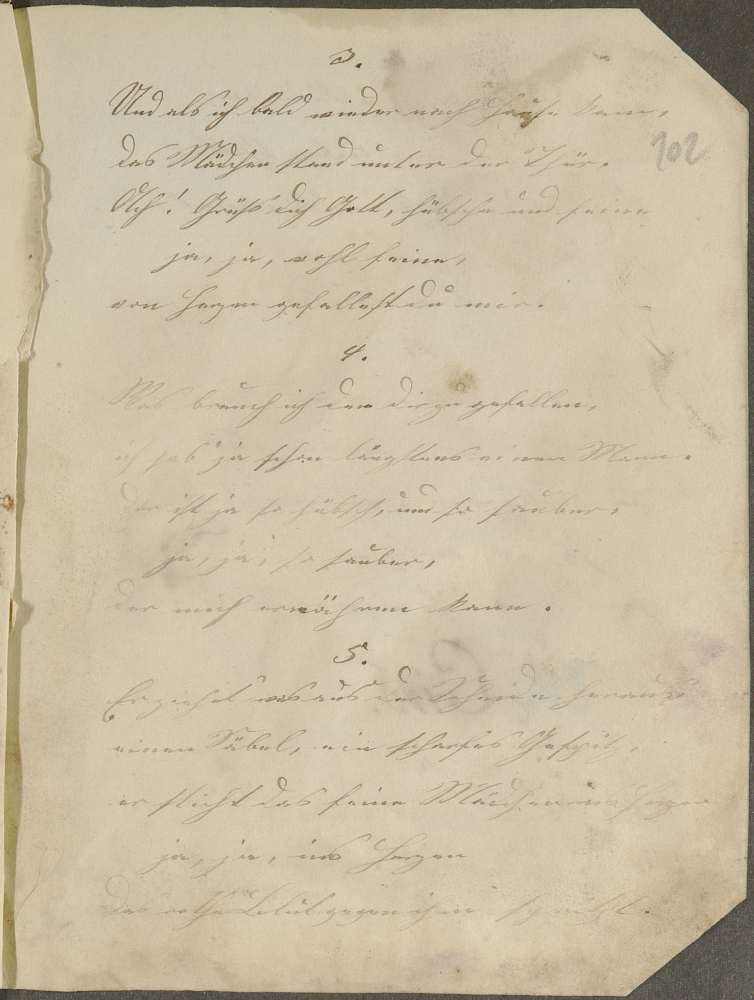 3.
Und als ich bald wieder nach Hause kam,
das Mädchen stand unter der Thür.
102
Ach! Grüß dich Gott, hübsche und feine
ja, ja, wohl feine,
von Herzen gefallest du mir.
4.
Was brauch ich den dir zu gefallen,
ich hab ja schon längstens einen Mann.
der ist ja so hübsch, und so sauber,
ja, ja, so sauber,
der mich ernähren kann.
5.
Er ziehet was aus der Scheide heraus,
einen Säbel, ein scharfes
er sticht das feine Mädchen ins Herzen
ja, ja, ins Herzen
das rothe Blut gegen ihm spritzt.